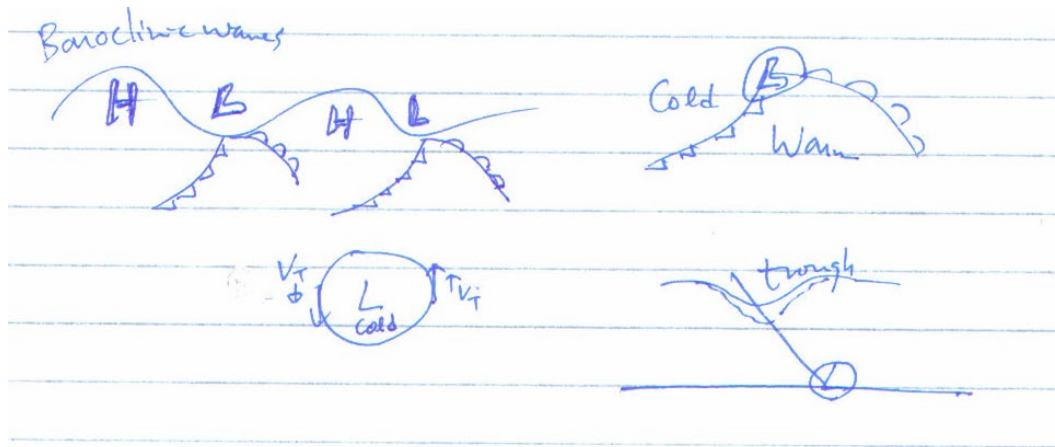 Baroclinic waves
H L H L
Cold L
Warm
V_T L V_T
Cold
trough
L